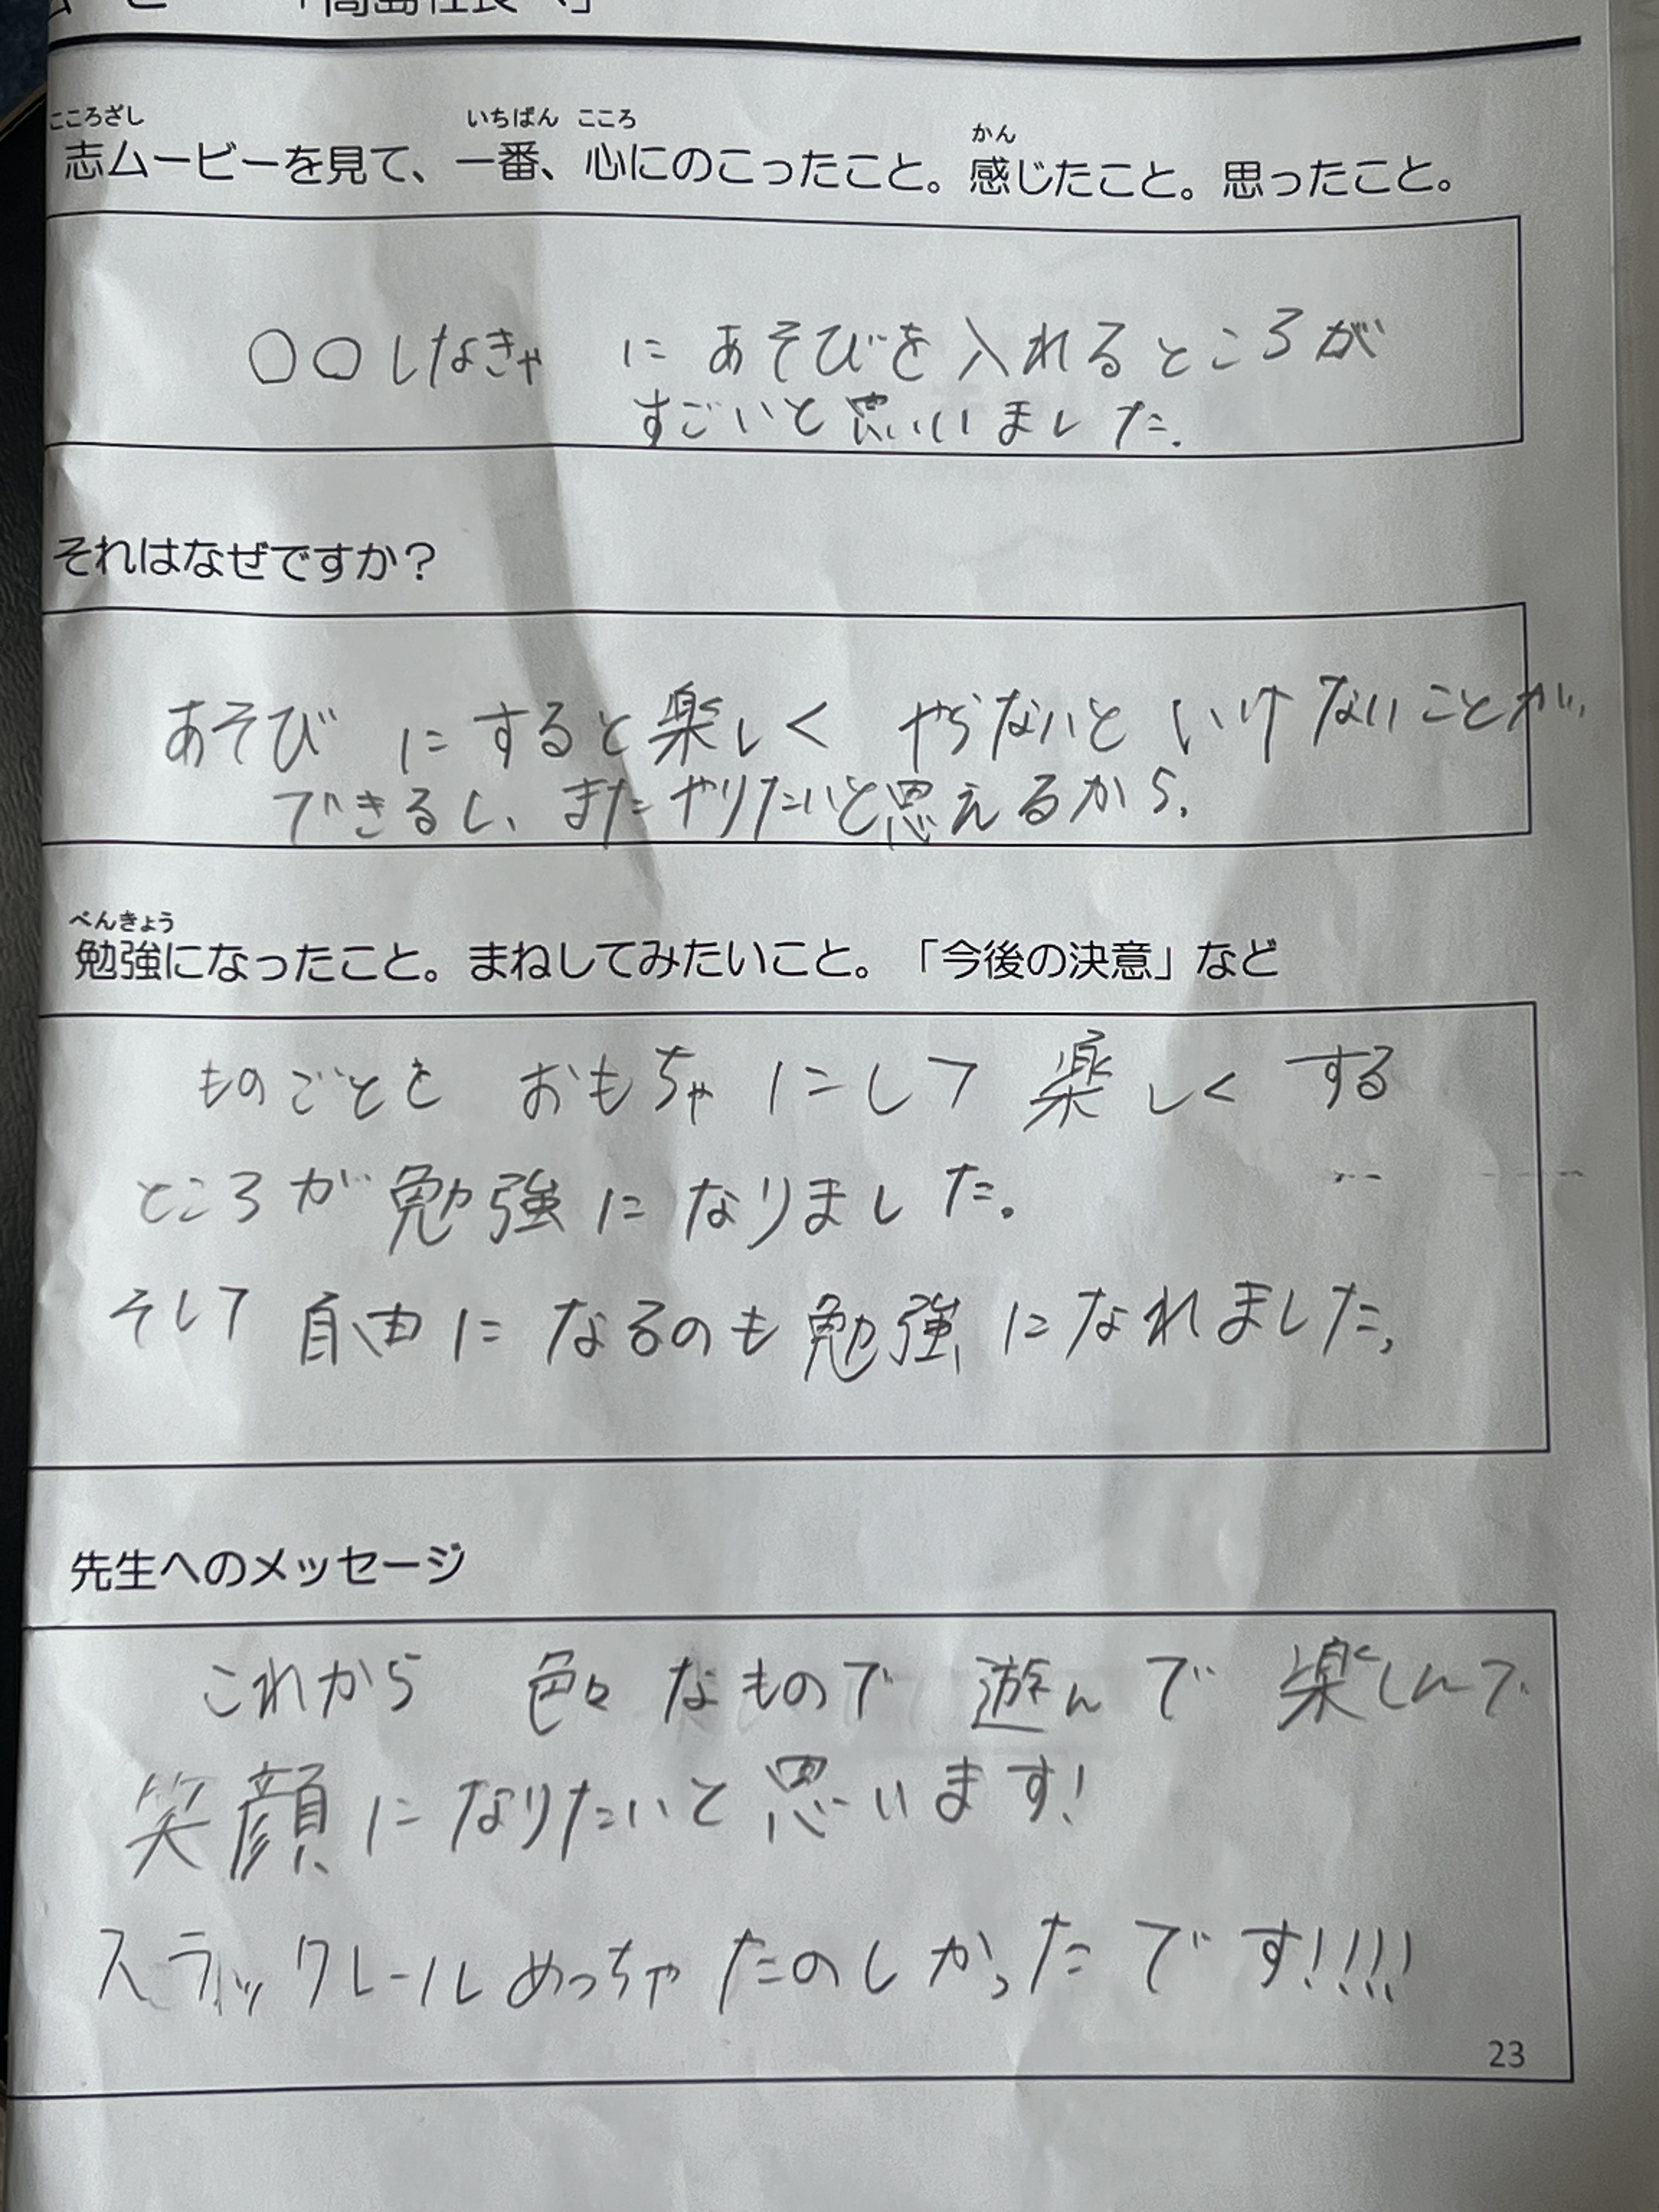 ムービー 「高島社長へ」
こころざし いちばん こころ かん
志ムービーを見て、一番、心にのこったこと。感じたこと。思ったこと。
〇〇しなきゃ に あそびを入れるところが
すごいと思いました.
それはなぜですか？
あそび にすると楽しく やらないと いけないことが、
できるし、またやりたいと思えるから.
べんきょう
勉強になったこと。まねしてみたいこと。「今後の決意」など
ものごとを おもちゃ にして 楽しく する
ところが勉強になりました。
そして 自由に なるのも勉強になれました、
先生へのメッセージ
これから 色々 なもので 遊んで 楽しんで
笑顔になりたいと思います!
スラックレールめっちゃたのしかったです!!!!
23